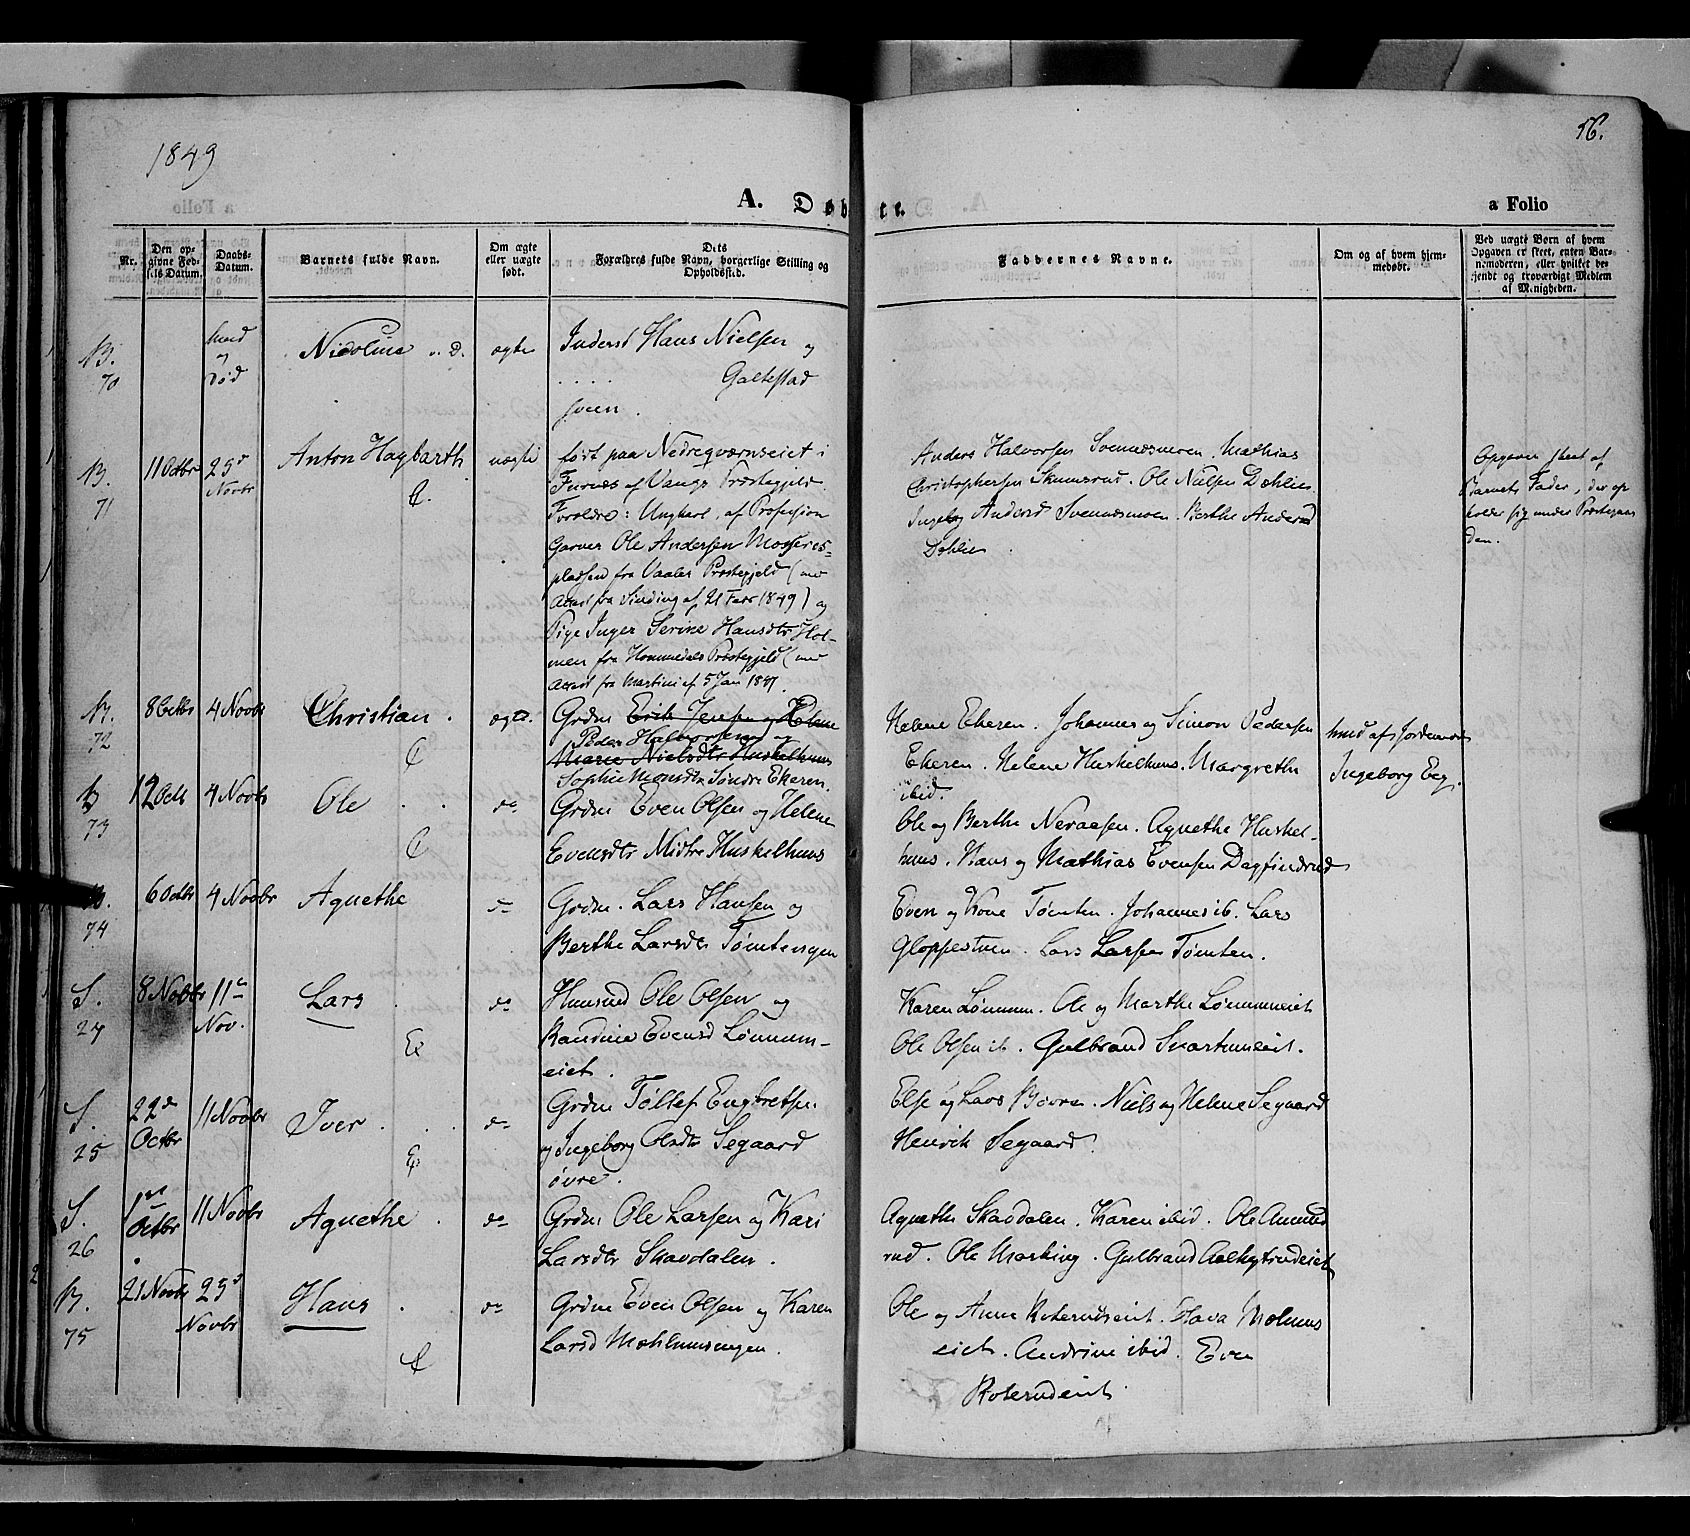 1849
56.
A. Døbte.
a Folio
Nr.
Den opgivne Fødsels Datum.
Daabs-Datum.
Barnets fulde Navn.
Om ægte eller uægte født.
Dets Forældres fulde Navn, borgerlige Stilling og Opholdssted.
Faddernes Navne.
Om og af hvem hjemmedøbt.
Ved uægte Børn af hvem Opgaven er skeet, enten Barnemoderen, eller hvilket bekjendt og troværdigt Medlem af Menigheden.
B.
70
hmd
og
død
Nicoline
ægte
Inderst Hans Nielsen og
. . . . Galtestad
sveen.
B.
71
11 Octbr
25d
Novbr
Anton Hagbarth
uægte
født paa Nedreqværnseiet i
Furnæs af Vangs Præstegjeld.
Forældre: Ungkarl, af Profession
Garver Ole Andersen Mosseres-
pladsen fra Vaaler Præstegjeld (med
Attest fra Sinding af 21 Febr 1849) og
Pige Inger Serine Hansdtr Hol-
men fra Hommedals Præstegjeld (med
Attest fra Martini af 5 Jan 1847.
Anders Halvorsen Svennæsmoen. Mathias
Christophersen Skumsrud. Ole Nielsen Dæhlie.
Ingeborg Andersd Svennæsmoen. Berthe Andersd
Dæhlie.
Opgaven skeet af
Barnets Fader, der op
holder sig under Præstegaar
den.
B.
72
8 Octbr
4 Novbr
Christian.
ægte.
Grdm Erik Jensen og Helene
Peder Halvorsen og
Marie Nielsdtr Huskelhuus
Sophie Monsdtr Søndre Ekeren.
Helene Ekeren. Johannes og Simon Pedersen
Ekeren. Helene Huskelhuus. Margrethe
ibid.
hmd af Jordemoder
Ingeborg Eeg.
B
73
12 Octb
4 Novbr
Ole
do
Grdm Even Olsen og Helene
Evensdtr Midtre Huskelhuus
Ole og Berthe Neraasen. Agnethe Huskel-
huus. Hans og Mathias Evensen Dagfindrud
B.
74
6 Octbr
4 Novbr
Agnethe
do
Grdm. Lars Hansen og
Berthe Larsdtr Tømtengen
Even og Kone Tømten. Johannes ib. Lars
Gloppestuen. Lars Larsen Tømten.
S.
24
8 Novbr
11te
Nov.
Lars
do
Huusmd Ole Olsen og
Randine Evensd Lønnum-
eiet.
Karen Lønnum. Ole og Marthe Lønnumeiet
Ole Olsen ib. Gulbrand Svartumeiet.
S.
25
22de
Octbr
11 Novbr
Iver.
do
Grdm Tøllef Engbretsen
og Ingeborg Olsdtr Segaard
øvre.
Else og Lars Bøvre. Niels og Helene Segaard
Henrik Segaard.
S.
26
1ste
Octbr
11 Novbr
Agnethe
do
Grdm Ole Larsen og Kari
Larsdtr Skavdalen.
Agnethe Skavdalen. Karen ibid. Ole Amund
rud. Ole Marking. Gulbrand
B.
75
21 Novbr
25d
Novbr
Hans
do
Grdm Even Olsen og Karen
Larsd Mæhlumsengen.
Ole og Anne Roterudseiet. Olava Mælums
eiet. Andrine ibid. Even
Roterudeiet.